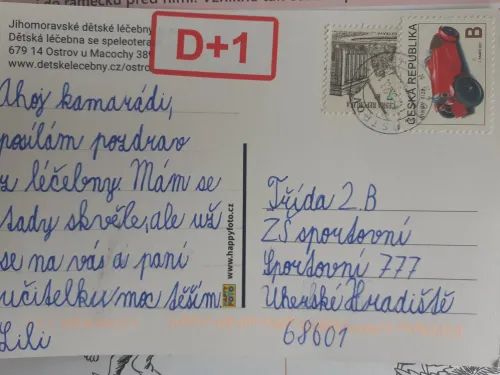 Jihomoravské dětské léčebny
Dětská léčebna se speleoterapi
679 14 Ostrov u Macochy 389
www.detskelecebny.cz/ostrov
D+1
ČESKÁ REPUBLIKA
B
Ahoj kamarádi,
posílám pozdrav
z léčebny. Mám se
tady skvěle, ale už
se na vás a paní
učitelku moc těším.
Lili
www.happyfoto.cz
HAPPY
FOTO
Třída 2.B
ZŠ sportovní
Sportovní 777
Uherské Hradiště
68601